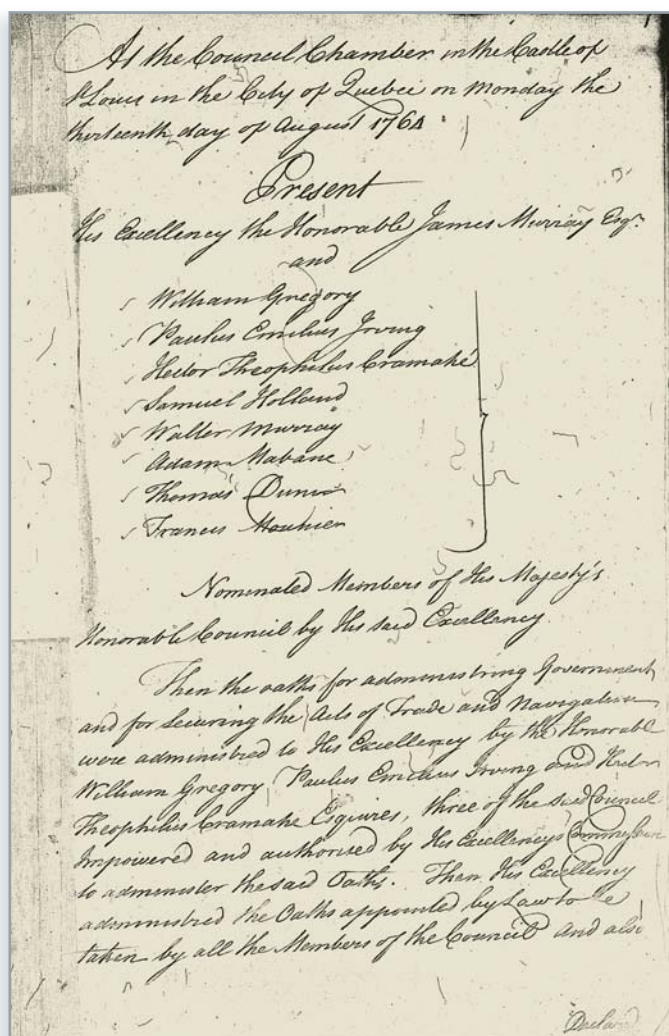 At the Council Chamber in the Castle of
St Louis in the City of Quebec on Monday the
thirteenth day of August 1764
Present
His Excellency the Honorable James Murray Esqr.
and
William Gregory
Paulus Emilius Irving
Hector Theophilus Cramahé
Samuel Holland
Walter Murray
Adam Mabane
Thomas Dunn
Francis Mounier
Nominated Members of His Majesty's
Honorable Council by His said Excellency.
Then the oaths for administring Government
and for securing the Acts of Trade and Navigation
were administred to His Excellency by the Honorable
William Gregory, Paulus Emilius Irving and Hector
Theophilus Cramahe Esquires, three of the said Council
Impowered and authorised by His Excellency's Commission
to administer the said Oaths. Then His Excellency
administred the Oaths appointed by Law to be
taken by all the Members of the Council and also